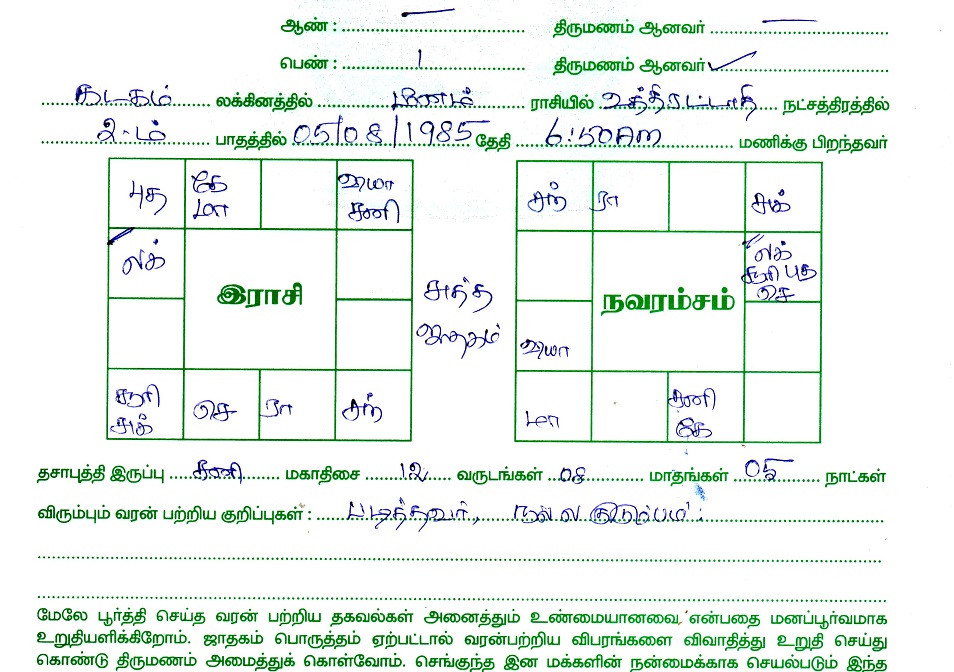 ஆண் : திருமணம் ஆனவர்
பெண் : 1 திருமணம் ஆனவர் ✓
கடகம் லக்கினத்தில் மீனம் ராசியில் உத்திரட்டாதி நட்சத்திரத்தில்
2-ம் பாதத்தில் 05/08/1985 தேதி 6:50Am மணிக்கு பிறந்தவர்
புத கே வியா சந் ரா சுக்
மா சனி
லக் லக்
சூரி புத
செ
இராசி சுத்த நவரம்சம்
ஜாதகம்
வியா
சூரி செ ரா சந் மா சனி
சுக் கே
தசாபுத்தி இருப்பு சனி மகாதிசை 12 வருடங்கள் 08 மாதங்கள் 05 நாட்கள்
விரும்பும் வரன் பற்றிய குறிப்புகள் : படித்தவர், நல்ல குடும்பம்
மேலே பூர்த்தி செய்த வரன் பற்றிய தகவல்கள் அனைத்தும் உண்மையானவை என்பதை மனப்பூர்வமாக
உறுதியளிக்கிறோம். ஜாதகம் பொருத்தம் ஏற்பட்டால் வரன்பற்றிய விபரங்களை விவாதித்து உறுதி செய்து
கொண்டு திருமணம் அமைத்துக் கொள்வோம். செங்குந்த இன மக்களின் நன்மைக்காக செயல்படும் இந்த